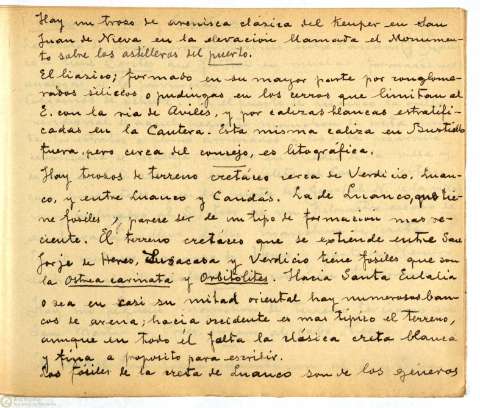 Hay un trozo de arenisca clásica del Keuper en San
Juan de Nieva en la elevación llamada el Monumen-
to sobre los astilleros del puerto.
El liásico; formado en su mayor parte por conglome-
rados silíceos o pudingas en los cerros que limitan al
E. con la ria de Avilés, y por calizas blancas estratifi-
cadas en la Cantera. Esta misma caliza en Bustiello
fuera, pero cerca del concejo, es litográfica.
Hay trozos de terreno cretáceo cerca de Verdicio, Luan-
co, y entre Luanco y Candás. La de Luanco, que tie-
ne fosiles, parece ser de un tipo de formacion mas re-
ciente. El terreno cretaceo que se extiende entre San
Jorje de Heres, Susacasa y Verdicio tiene fosiles que son
la Ostrea carinata y Orbitolites. Hacia Santa Eulalia
o sea en casi su mitad oriental hay numerosos ban-
cos de arena; hacia occidente es mas tipico el terreno,
aunque en todo él falta la clásica creta blanca
y fina a proposito para escribir.
Los fósiles de la creta de Luanco son de los géneros